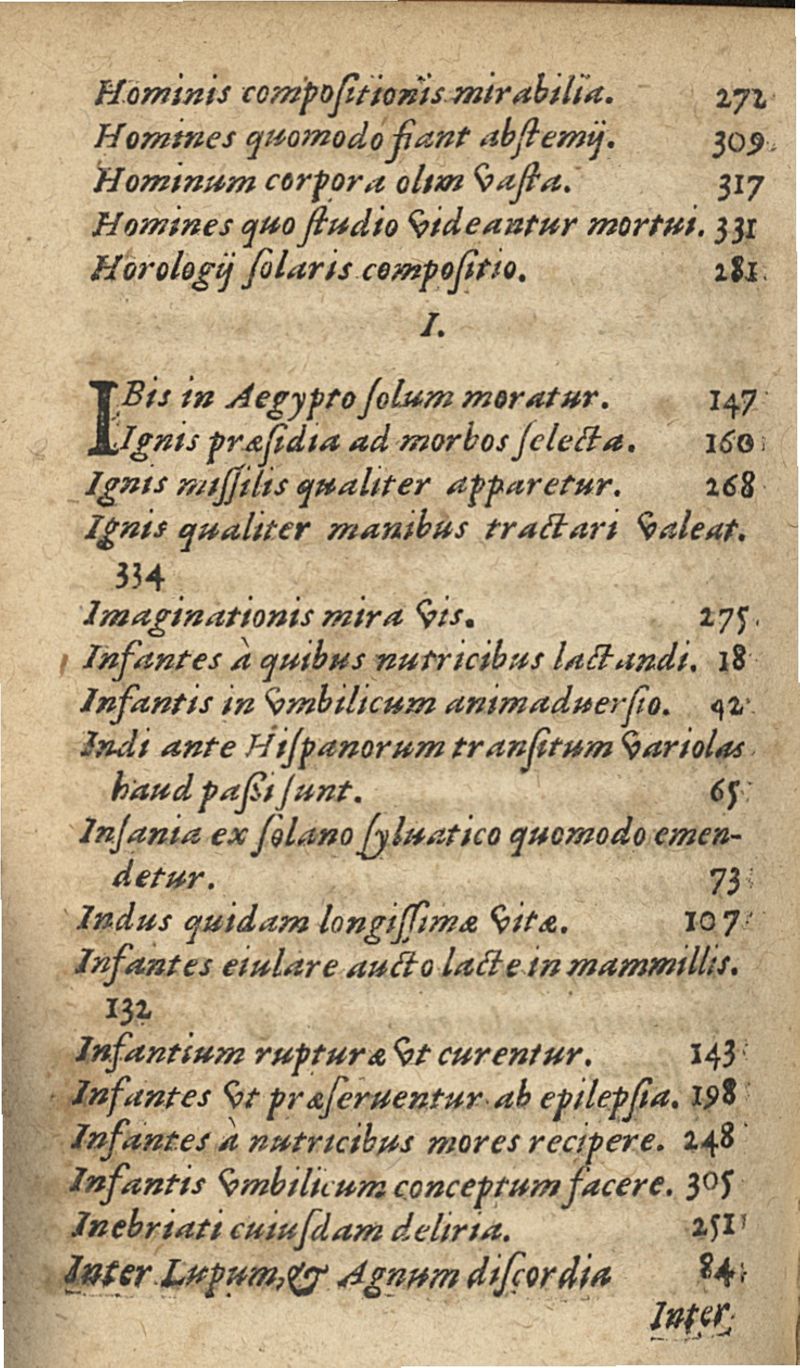 Hominis compoſitionis mirabilia. 272
Homines quomodo fiant abſtemij. 309
Hominum corpora olim vaſta. 317
Homines quo ſtudio videantur mortui. 331
Horologij ſolaris compoſitio. 281
I.
IBis in Aegypto ſolum moratur. 147
Ignis præſidia ad morbos ſelecta. 160
Ignis miſſilis qualiter apparetur. 268
Ignis qualiter manibus tractari valeat.
334
Imaginationis mira vis. 275
Infantes à quibus nutricibus lactandi. 18
Infantis in vmbilicum animaduerſio. 42
Indi ante Hiſpanorum tranſitum variolas
haud paßi ſunt. 65
Inſania ex ſolano ſyluatico quomodo emen-
detur. 73
Indus quidam longiſſimæ vitæ. 107
Infantes eiulare aucto lacte in mammillis.
132
Infantium rupturæ vt curentur. 143
Infantes vt præſeruentur ab epilepſia. 198
Infantes à nutricibus mores recipere. 248
Infantis vmbilicum conceptum facere. 305
Inebriati cuiuſdam deliria. 251
Inter Lupum, & Agnum diſcordia 84
Inter